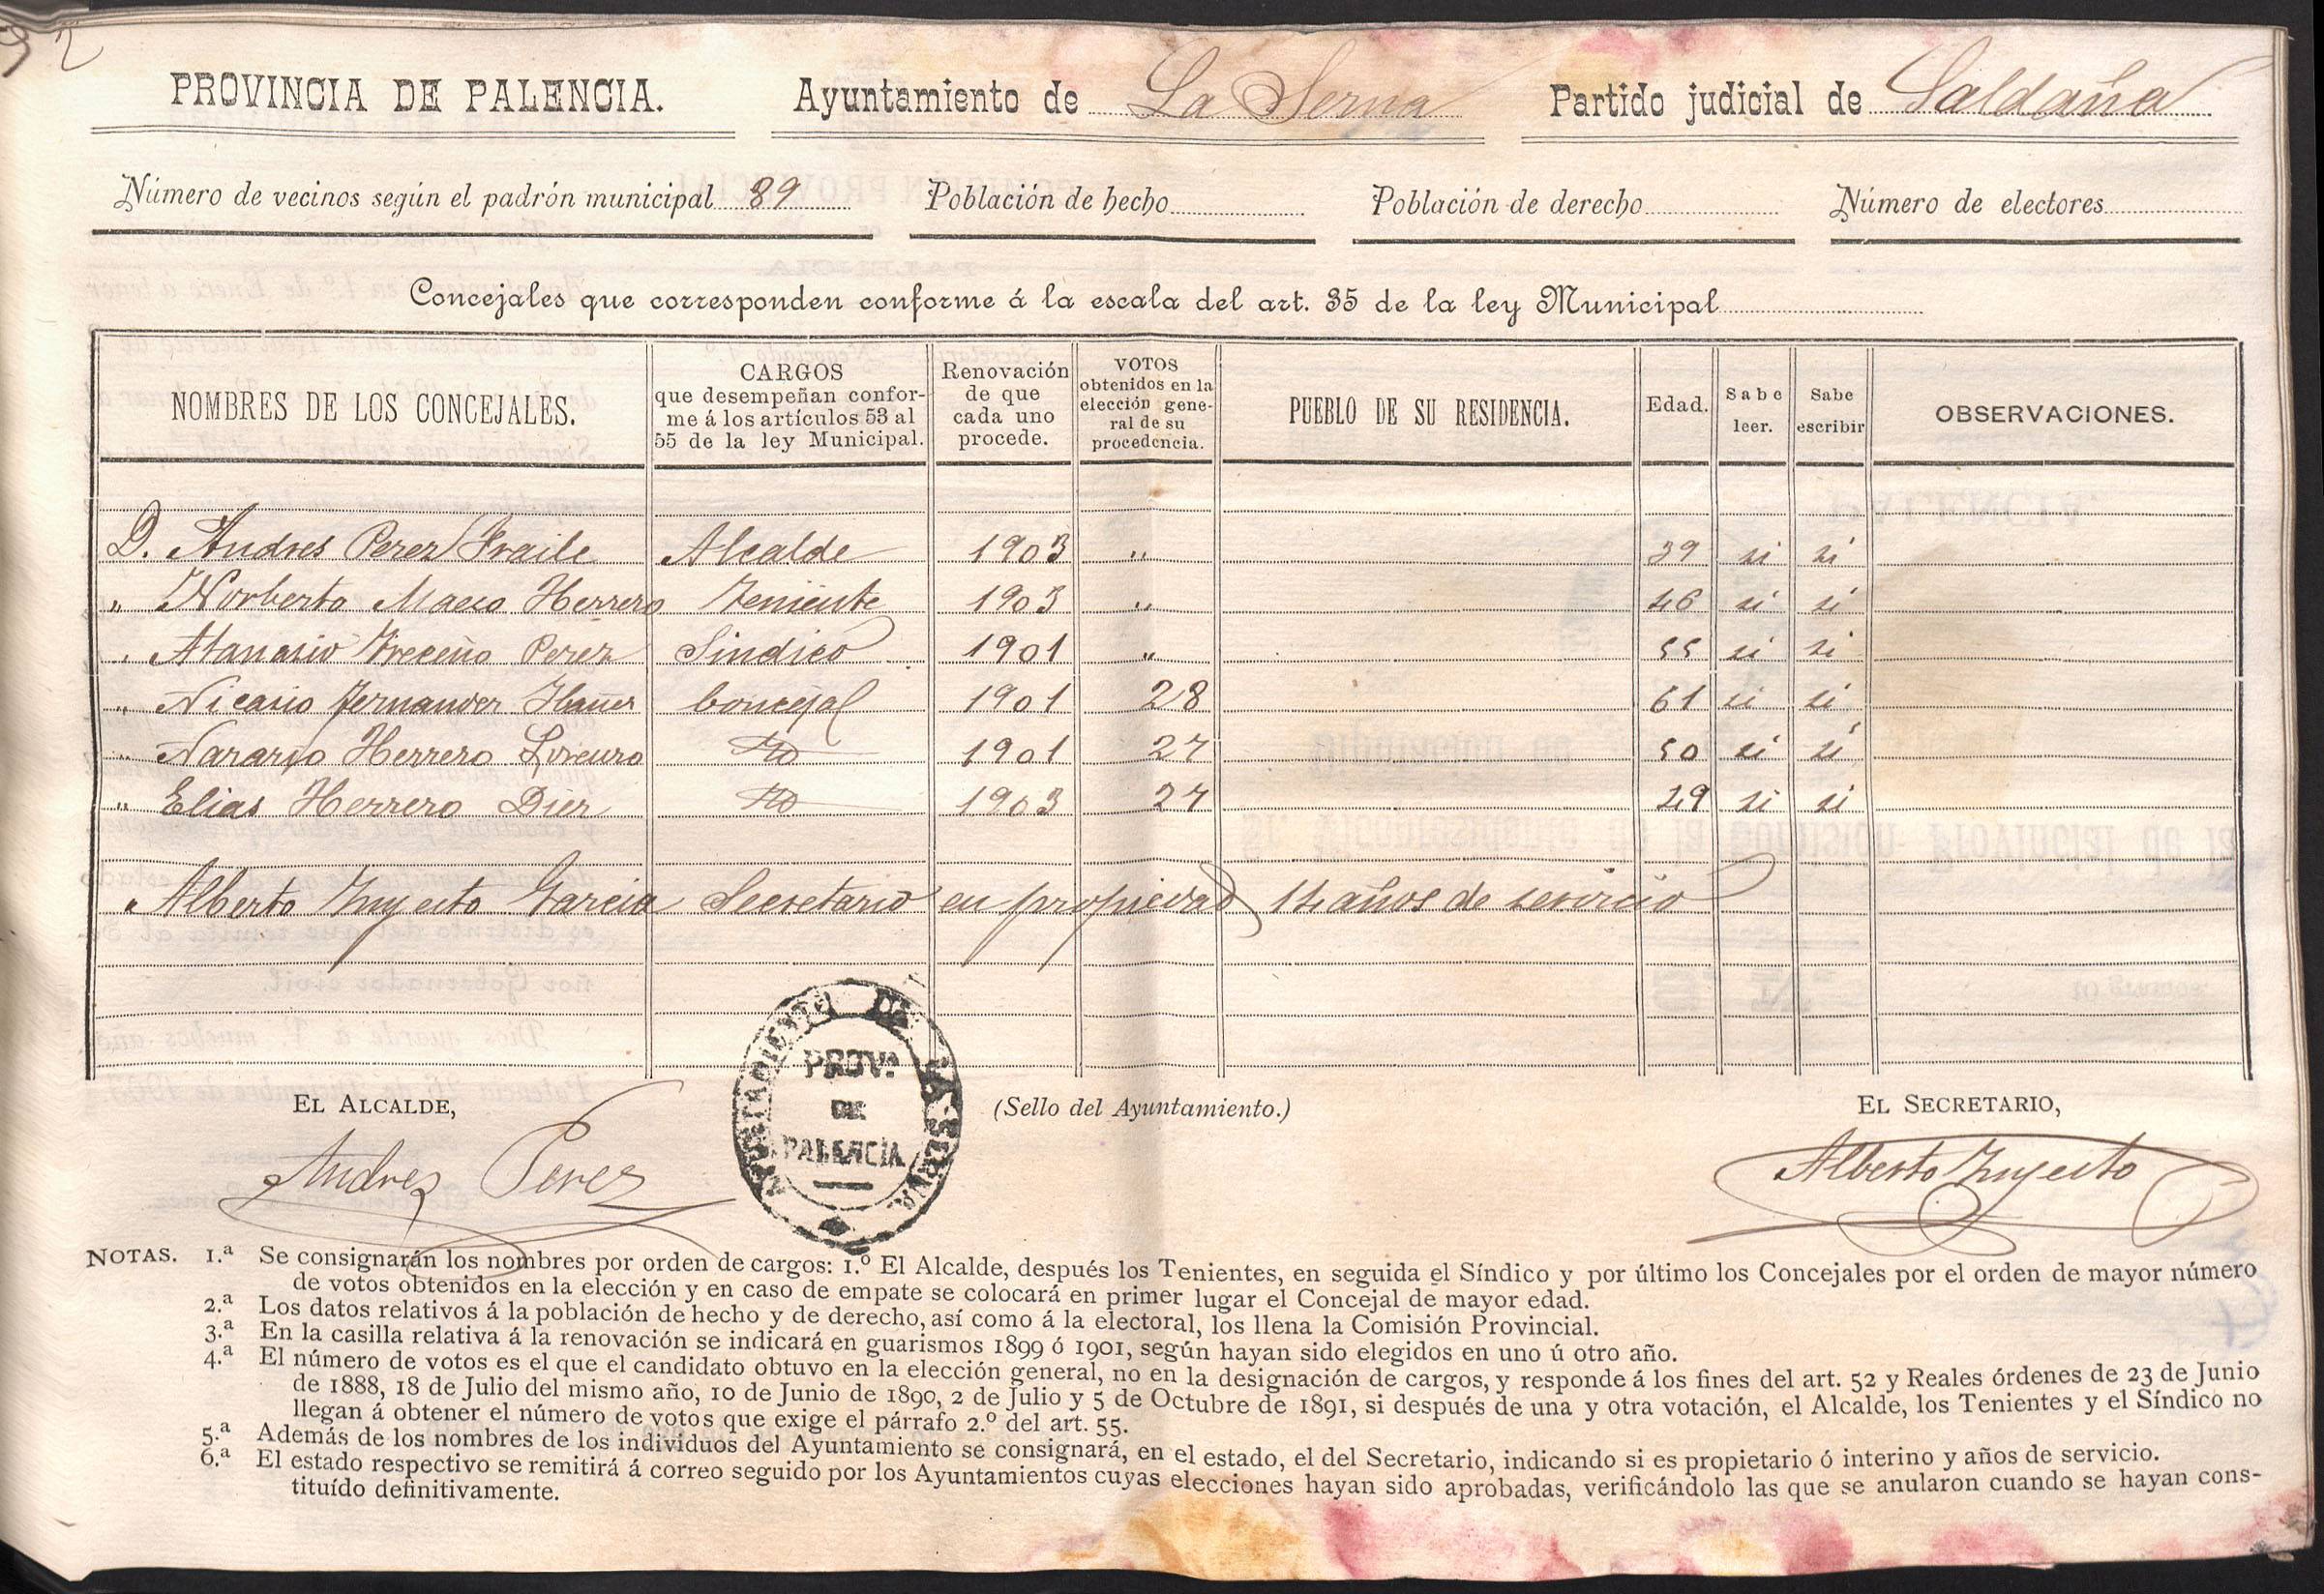 PROVINCIA DE PALENCIA. Ayuntamiento de La Serna Partido judicial de Saldaña
Número de vecinos según el padrón municipal 89 Población de hecho Población de derecho Número de electores
Concejales que corresponden conforme á la escala del art. 35 de la ley Municipal
NOMBRES DE LOS CONCEJALES. CARGOS que desempeñan confor- me á los artículos 53 al 55 de la ley Municipal. Renovación de que cada uno procede. VOTOS obtenidos en la elección gene- ral de su procedencia. PUEBLO DE SU RESIDENCIA. Edad. Sabe leer. Sabe escribir OBSERVACIONES.
D. Andres Perez Fraile Alcalde 1903 " 39 si si
" Norberto Maeso Herrero Teniente 1903 " 46 si si
" Atanasio Treceño Perez Sindico 1901 " 55 si si
" Nicasio Fernandez Ibañez Concejal 1901 28 61 si si
" Nazario Herrero Lorenzo 1901 27 50 si si
" Elias Herrero Diez 1903 27 49 si si
Alberto Inyesto Garcia Secretario en propiedad 14 años de servicio
EL ALCALDE, (Sello del Ayuntamiento.) EL SECRETARIO,
AYUNTAMIENTO DE LA SERNA
PROVA
DE
PALENCIA
Andres Perez Alberto Inyesto
NOTAS. 1.ª Se consignarán los nombres por orden de cargos: 1.º El Alcalde, después los Tenientes, en seguida el Síndico y por último los Concejales por el orden de mayor número
de votos obtenidos en la elección y en caso de empate se colocará en primer lugar el Concejal de mayor edad.
2.ª Los datos relativos á la población de hecho y de derecho, así como á la electoral, los llena la Comisión Provincial.
3.ª En la casilla relativa á la renovación se indicará en guarismos 1899 ó 1901, según hayan sido elegidos en uno ú otro año.
4.ª El número de votos es el que el candidato obtuvo en la elección general, no en la designación de cargos, y responde á los fines del art. 52 y Reales órdenes de 23 de Junio
de 1888, 18 de Julio del mismo año, 10 de Junio de 1890, 2 de Julio y 5 de Octubre de 1891, si después de una y otra votación, el Alcalde, los Tenientes y el Síndico no
llegan á obtener el número de votos que exige el párrafo 2.º del art. 55.
5.ª Además de los nombres de los individuos del Ayuntamiento se consignará, en el estado, el del Secretario, indicando si es propietario ó interino y años de servicio.
6.ª El estado respectivo se remitirá á correo seguido por los Ayuntamientos cuyas elecciones hayan sido aprobadas, verificándolo las que se anularon cuando se hayan cons-
tituído definitivamente.